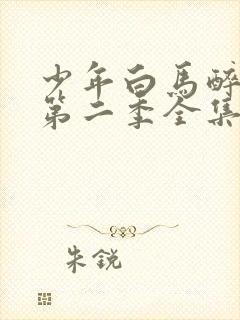 少年白馬醉
第二季全集
朱銳